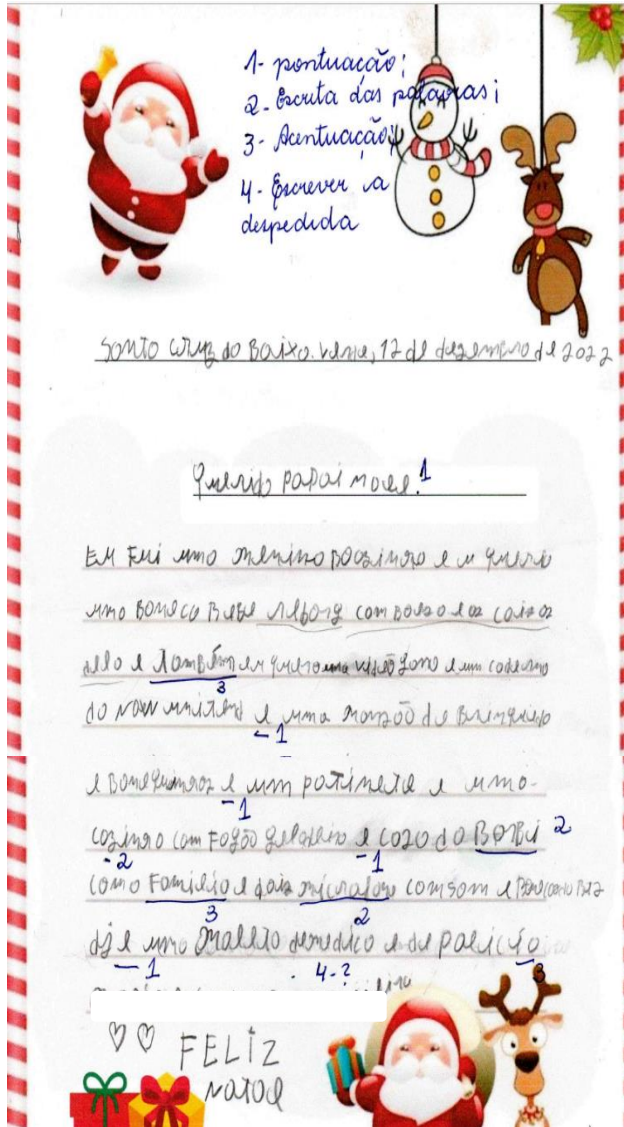 1- pontuação;
2- Escrita das palavras;
3- Acentuação;
4- Escrever a
despedida
Santo Cruz do Baixa.Verde, 12 de dezembro de 2022
Querido papai noel. 1
EU Fui uma menina boazinha e eu quero
uma Boneca Bebe reborg com bolsa e as coisas
dela e também eu quero uma video game e um caderno
3
do now united e uma mansão de Brinquedo
-1
e Bonequinhas e um patinete e uma
-1
cozinha com Fogão geladeira e casa da BARBi 2
-2 -1
com a Familia e dois microfone com som e
3 2
dj e uma maleta de medico e de policia
-1 4-? 3
FELiZ
NATAL